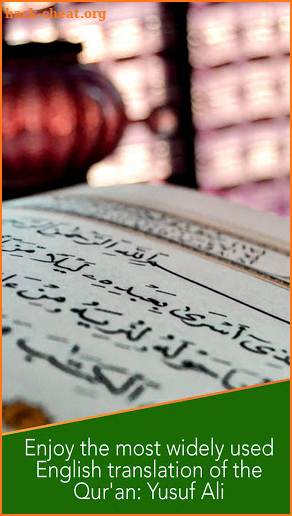 hack-cheat.org
اللَّهِ الرَّحْمَٰنِ
أَسْرَىٰ بِعَبْدِهِ لَيْلًا مِّنَ
حَوْلَهُ لِنُرِيَهُ مِنْ
الْكِتَٰبَ
Enjoy the most widely used
English translation of the
Qur'an: Yusuf Ali